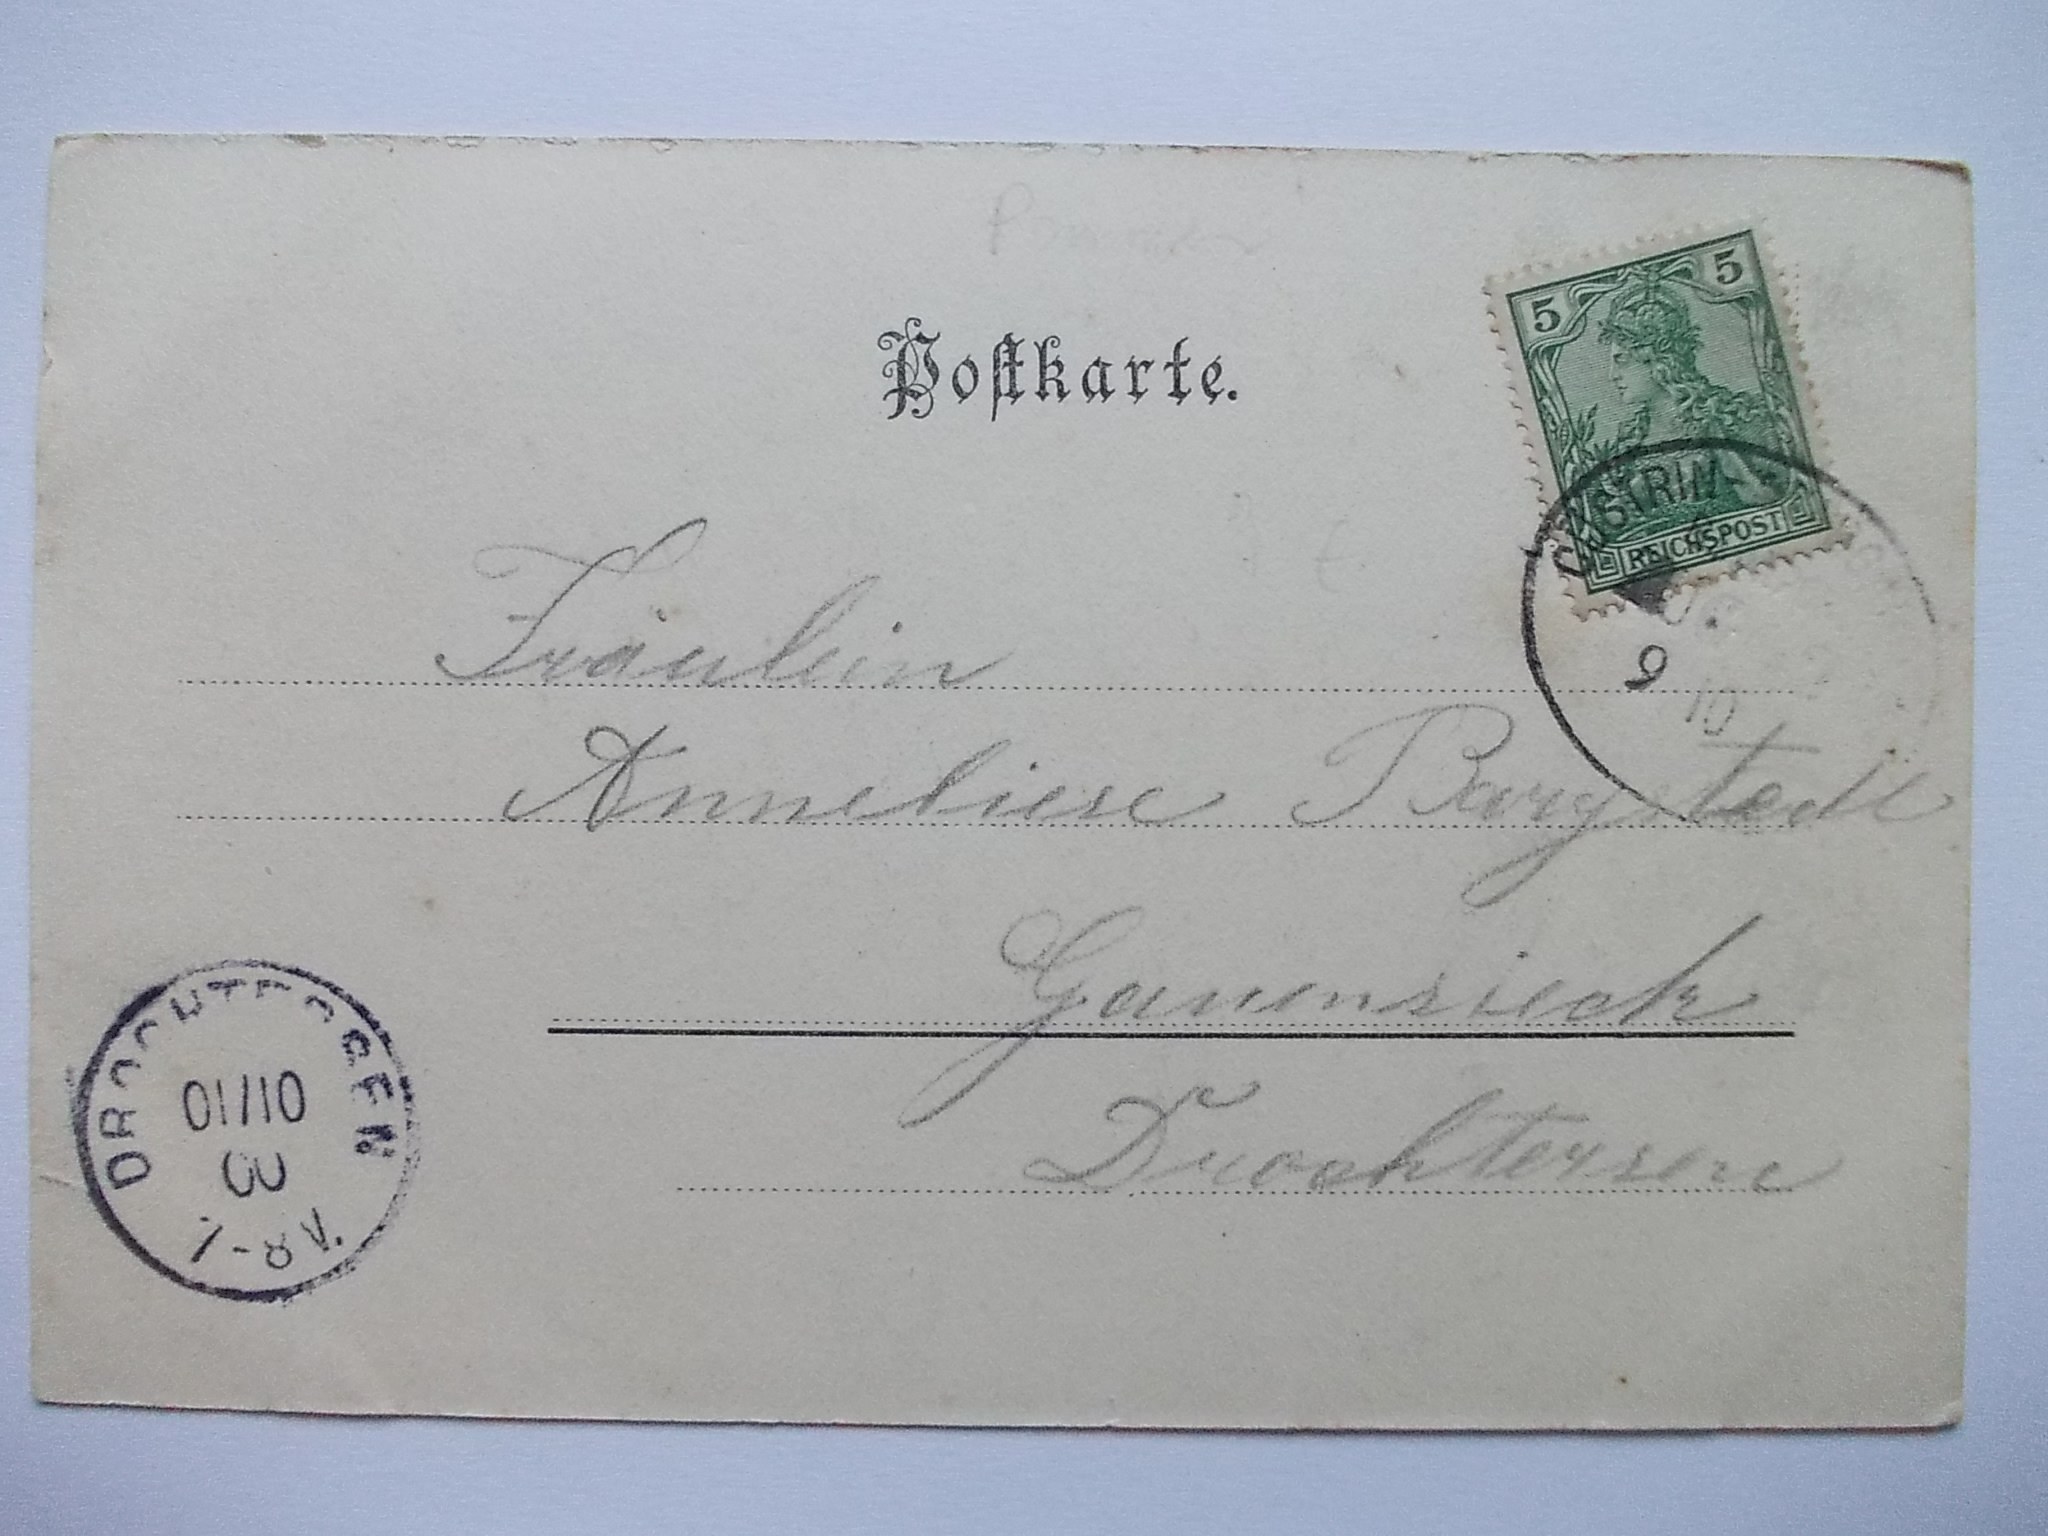 Postkarte.
5 5
REICHSPOST
9
10
Fräulein
Anneliese Bargstedt
Gauensieck
Drochtersen
DROCHTERSEN
01/10
00
7-8V.